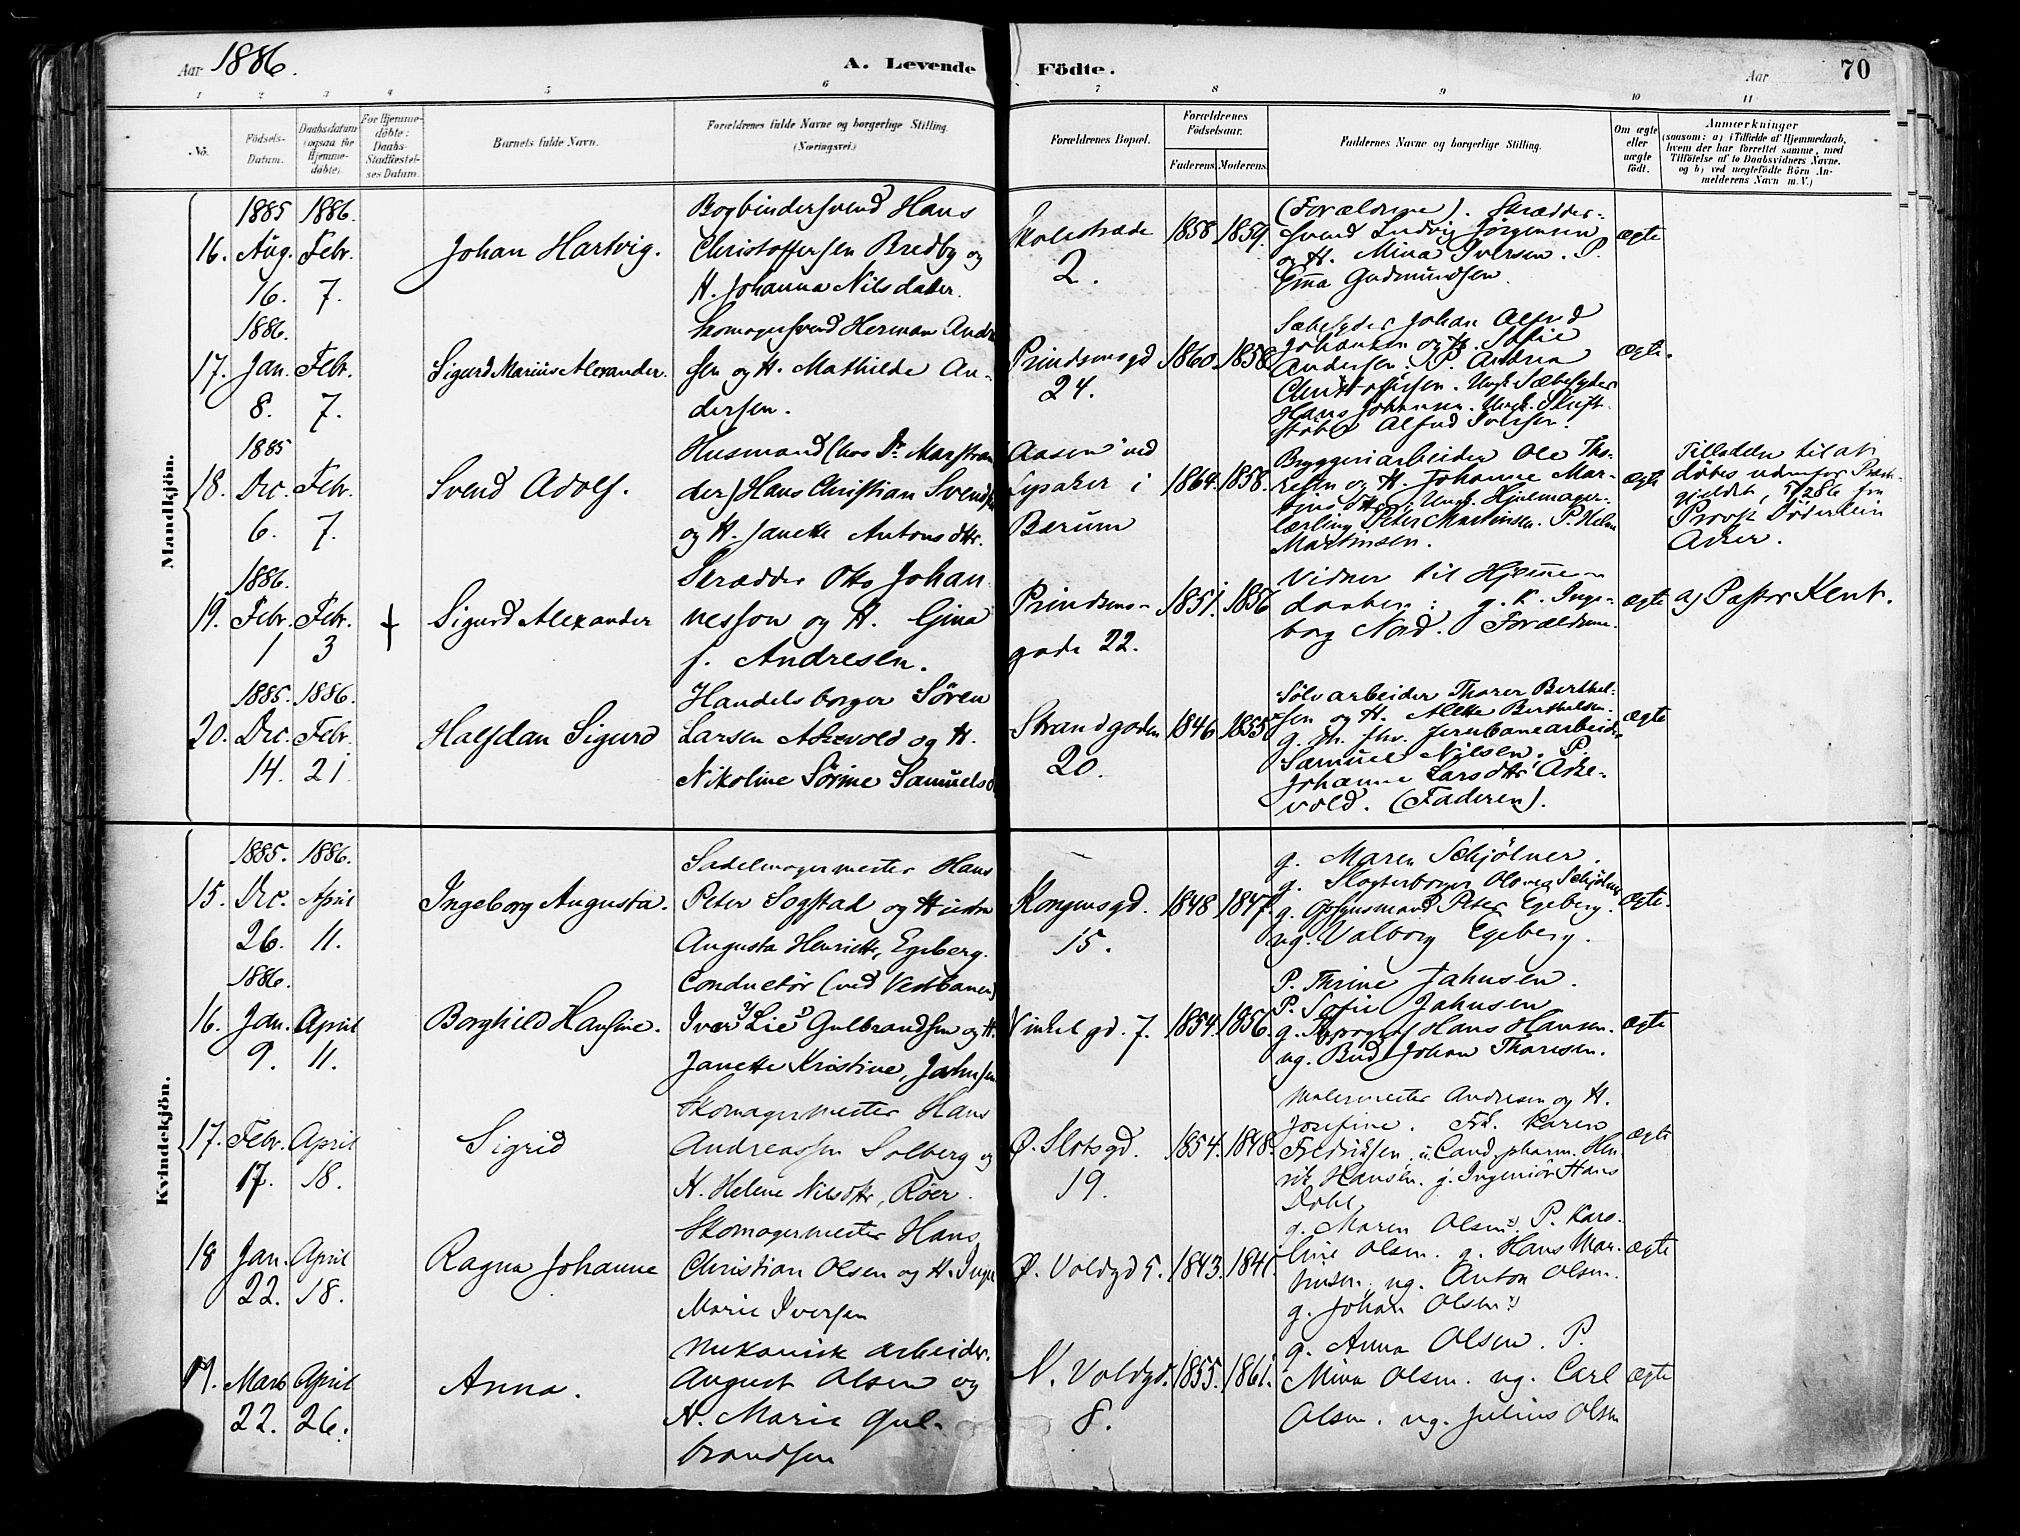 Aar 1886.
A. Levende Födte.
Aar 70
1 2 3 4 5 6 7 8 9 10 11
No.
Födsels-Datum.
Daabsdatum (ogsaa for Hjemme-döbte).
For Hjemme-döbte: Daabs-Stadfæstel-ses Datum.
Barnets fulde Navn.
Forældrenes fulde Navne og borgerlige Stilling.
(Næringsvei.)
Forældrenes Bopæl.
Forældrenes Födselsaar.
Faderens. Moderens.
Faddernes Navne og borgerlige Stilling.
Om ægte eller uægte födt.
Anmærkninger
(saasom: a) i Tilfælde af Hjemmedaab, hvem der har forrettet samme, med Tilföielse af to Daabsvidners Navne. og b) ved uægtefödte Börn Anmelderens Navn m. V.)
Mandkjön.
1885 1886.
16. Aug. 16. Febr. 7.
Johan Hartvig.
Bogbindersvend Hans
Christoffersen Bredby og
H. Johanna Nilsdatter.
Skolestræde
2.
1858 1859.
(Forældrene). Skrædder-
svend Ludvig Jörgensen
og H. Mina Iversen. P.
Ema Gudmundsen.
ægte
1886.
17. Jan. 8. Febr. 7.
Sigurd Marius Alexander.
Skomagersvend Herman Andr
sen og H. Mathilde An-
dersen.
Prindsensgd
24.
1860. 1858.
Sæbesyder Johan Alfred
Johansen og H. Sofie
Andersen. P. Andrea
Christoffersen. Ungk. Sæbesyder
Hans Johansen. Ungk. Skrift-
stöber Alfred Iversen.
ægte.
1885
18. Dec. 6. Febr. 7.
Svend Adolf.
Husmand (hos Dr. Marstran
der) Hans Christian Svends
og H. Janette Antonsdtr.
Aasen ved
Lysaker i
Bærum
1864. 1858.
Bryggeriarbeider Ole Tho-
resen og H. Johanne Mar-
tinsdtr, Ungk. Hjulmager-
lærling Peter Martinsen. P. Helene
Martinsen.
ægte
Tilladelse til at
döbes udenfor Præste-
gjeldet, 5/2 86 fra
Provst Döderlein
Asker.
1886.
19. Febr. 1 Febr. 3
+
Sigurd Alexander
Skrædder Otto Johan
nesson og H. Gina
f. Andresen.
Prindsens-
gade 22.
1851. 1856
Vidner til Hjemme-
daaben: g. k. Inge-
borg Nord. Forældrene.
ægte
a) Pastor Kent.
1885. 1886.
20. Dec. 14. Febr. 21
Halfdan Sigurd
Handelsborger Sören
Larsen Askevold og H.
Nikoline Sörine Samuelsd
Strandgaden
20.
1846 1855
Sölvarbeider Thorer Berthel-
sen og H. Alette Berthelsen.
Jernbanearbeider
Samuel Nilsen. P.
Johanne Larsdtr Aske-
vold. (Faderen).
ægte
Kvindekjön.
1885. 1886.
15. Dec. 26. April 11.
Ingeborg Augusta.
Sadelmagermester Hans
Peter Sogstad og Hustru
Augusta Henriette, Egeberg.
Kongensgd.
15.
1848 1847.
g. Maren Schjölner.
g. Slagterborger Olaves Schjölner
g. Opsynsmand Peter Egeberg.
ug. Valborg Egeberg.
ægte.
1886.
16. Jan. 9. April 11.
Borghild Hansine.
Conductör (ved Vestbanen)
Iver "Lie" Gulbrandsen og H.
Janette Kristine, Jahnsen
Vinkelgd. 7.
1854. 1856.
P. Thrine Jahnsen.
P. Sofie Jahnsen
g. Typograf Hans Hansen.
ug. Bud Johan Thoresen.
ægte
17. Febr. 17. April 18.
Sigrid
Skomagermester Hans
Andreassen Solberg og
H. Helene Nilsdtr, Röer.
Ø. Slotsgd.
19.
1854. 1848.
Malermester Andresen og H.
Josefine. Frk. Karen
Fredriksen. u. Cand. pharm. Hen-
rik Hansen. g. Ingeniör Hans
Dahl.
ægte
18 Jan. 22. April 18.
Ragna Johanne
Skomagermester Hans
Christian Olsen og H. Inger
Marie Iversen
Ø. Voldgd 5.
1843. 1841.
g. Maren Olsen, P. Karo-
line Olsen. g. Hans Mar-
tinsen, ug. Anton Olsen.
g. Johan Olsen
ægte
19. Marts 22. April 26.
Anna.
Mekanisk arbeider.
August Olsen og
H. Marie Gul-
brandsen
N. Voldgd.
8.
1855. 1861.
g. Anna Olsen. P.
Mina Olsen. ug. Carl
Olsen. ug. Julius Olsen
ægte